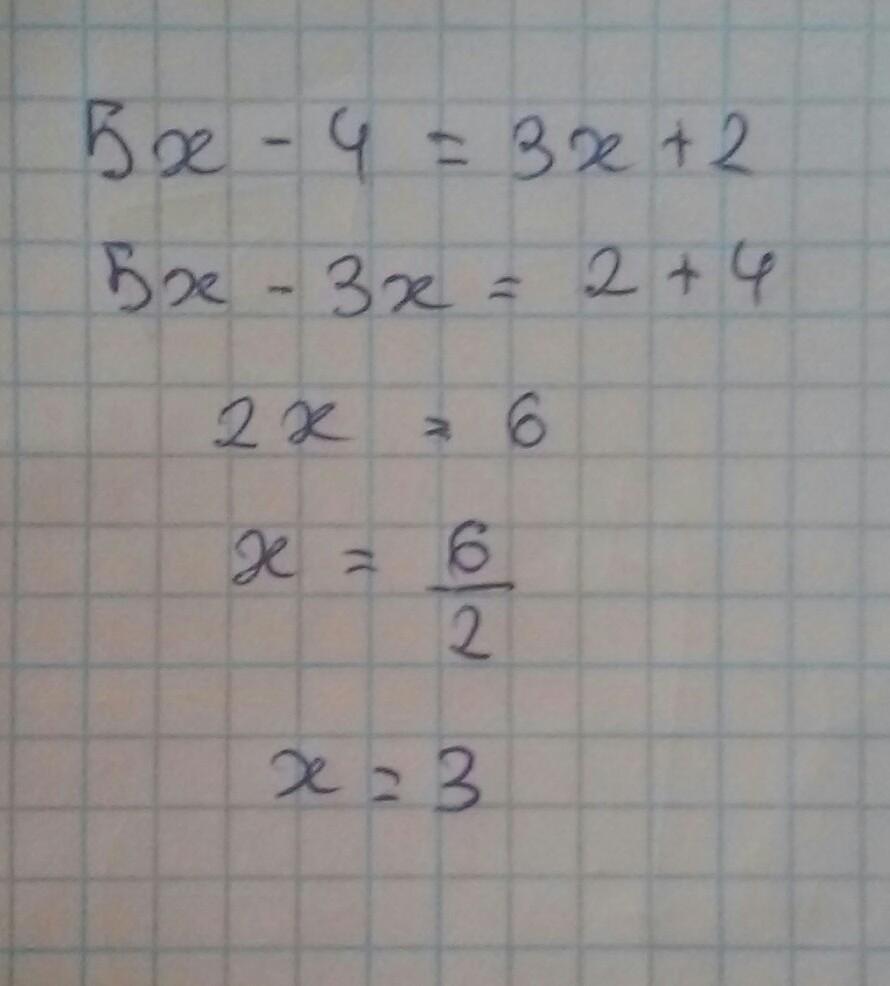 5x - 4 = 3x + 2
5x - 3x = 2 + 4
2x = 6
x = 6/2
x = 3